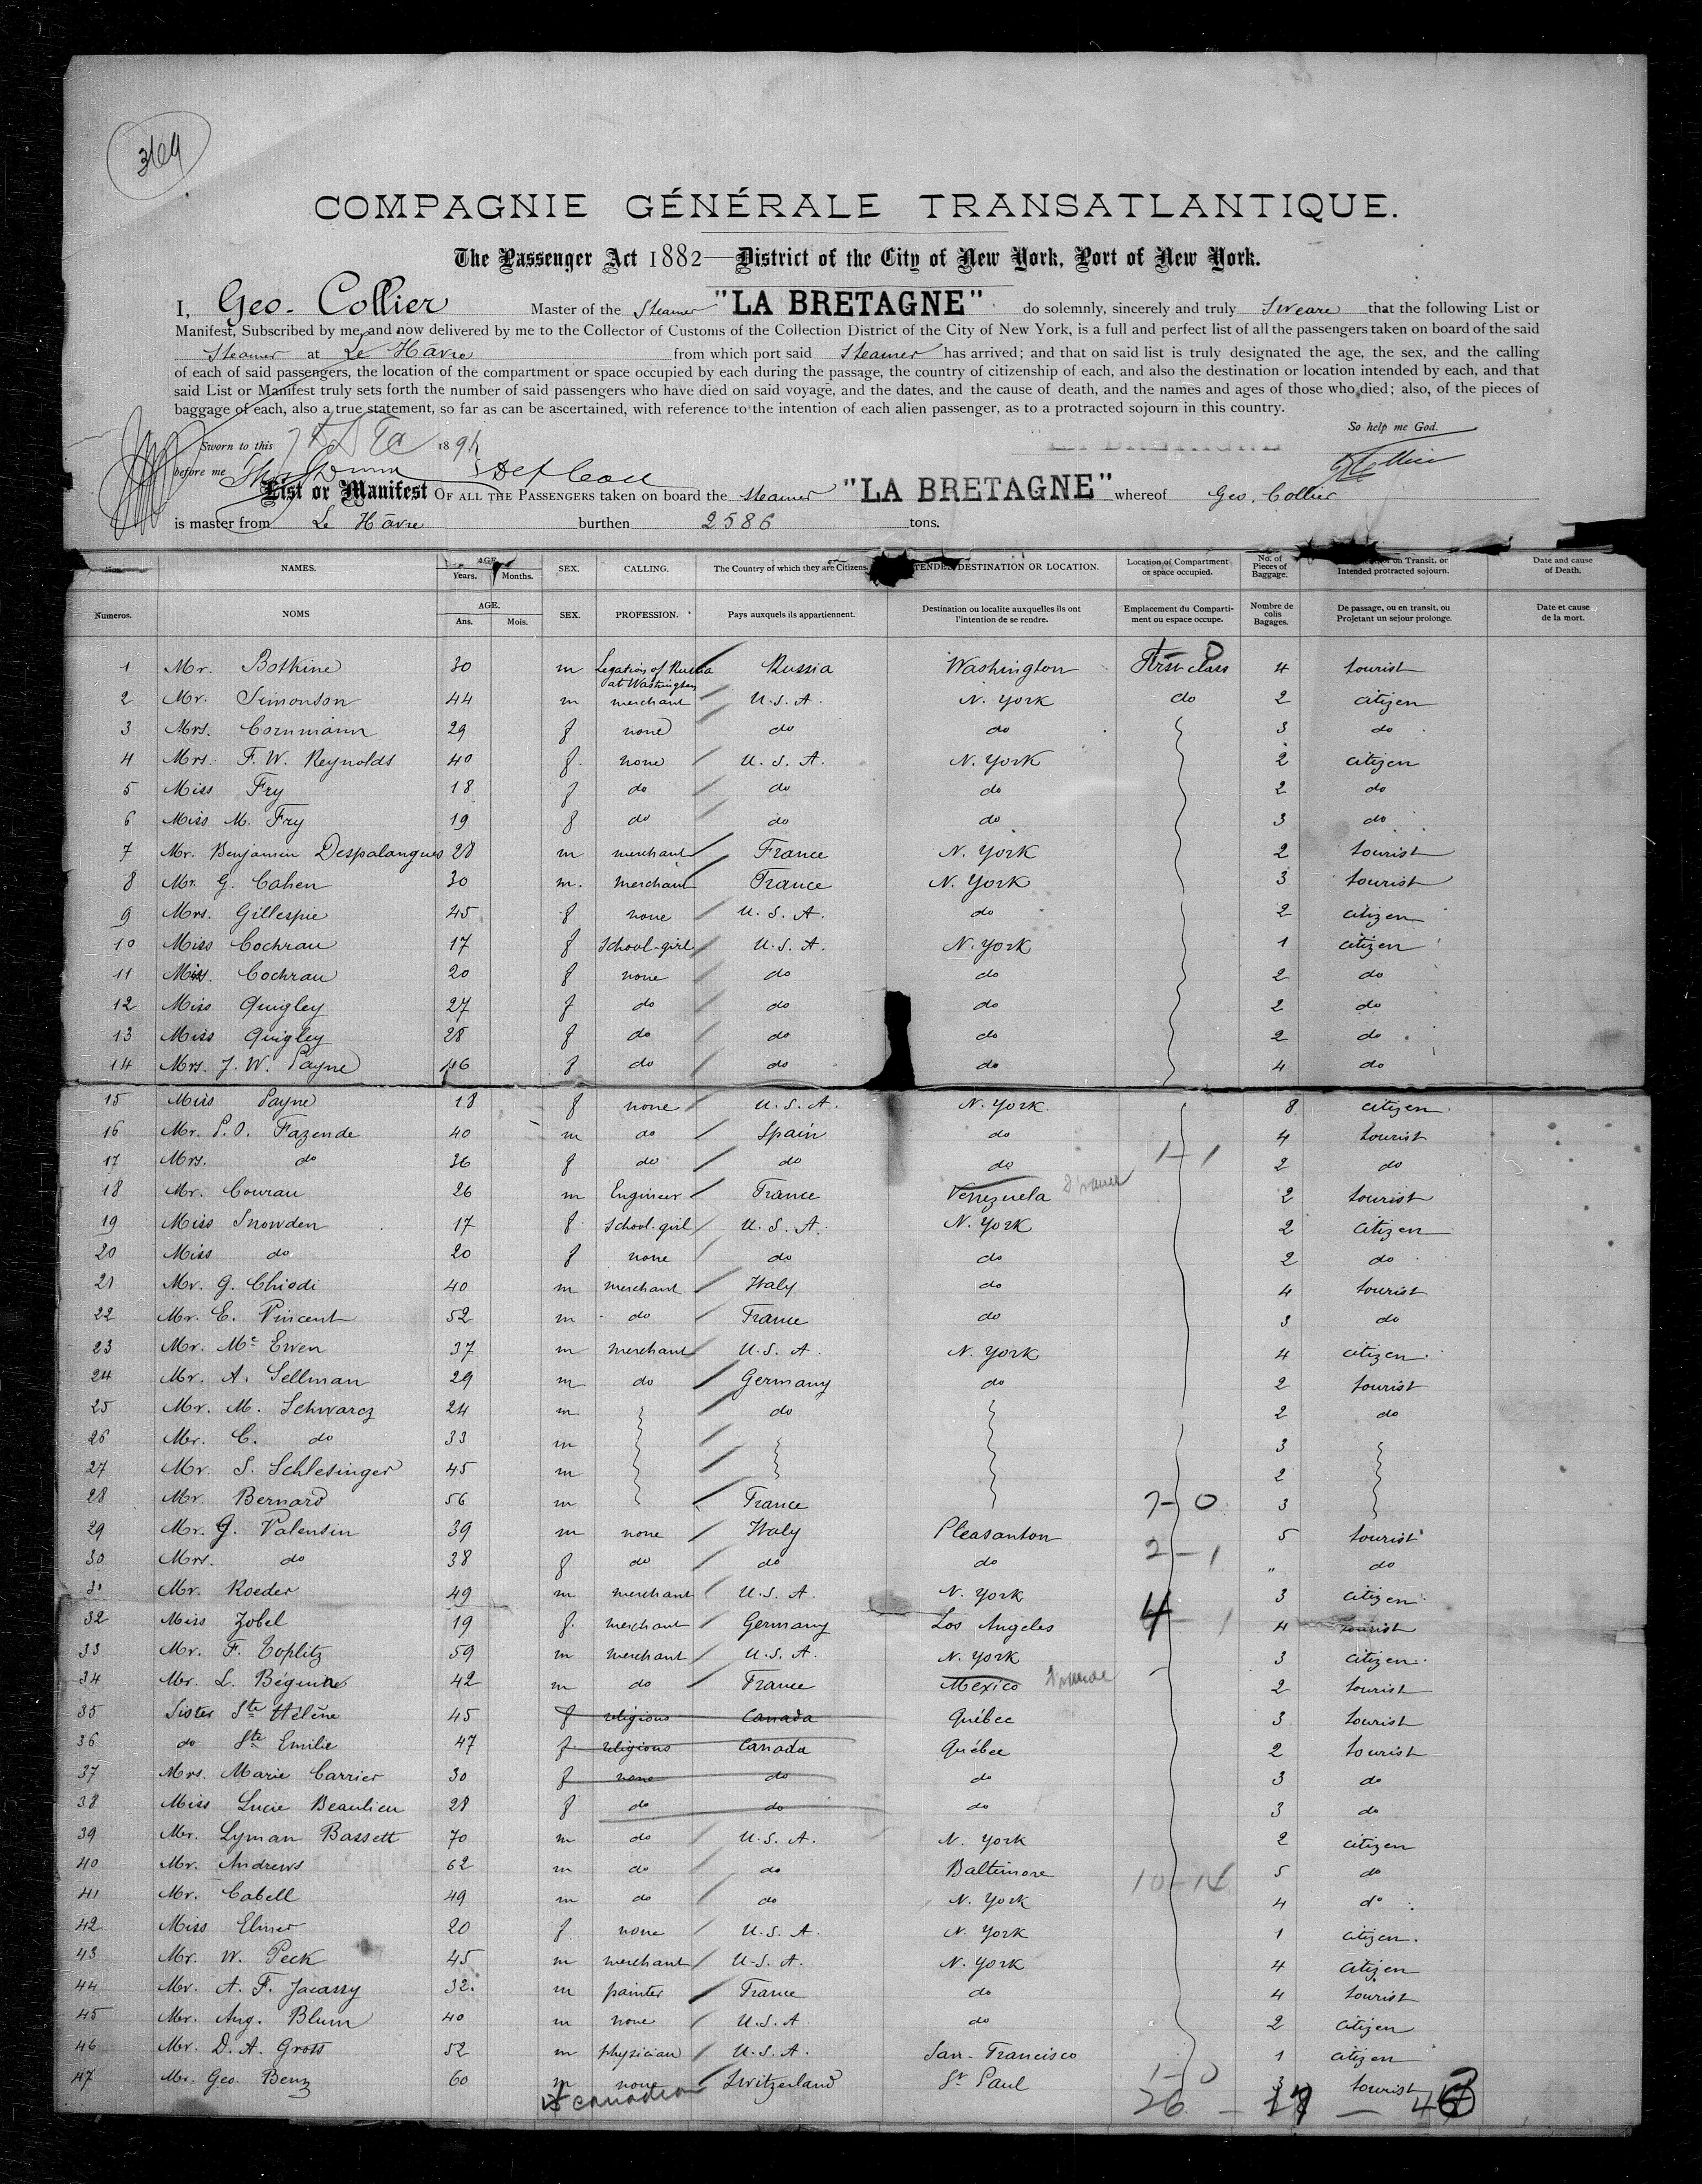 3164
COMPAGNIE GÉNÉRALE TRANSATLANTIQUE.
The Passenger Act 1882—District of the City of New York, Port of New York.
I, Geo. Collier Master of the Steamer "LA BRETAGNE" do solemnly, sincerely and truly Sweare that the following List or
Manifest, Subscribed by me, and now delivered by me to the Collector of Customs of the Collection District of the City of New York, is a full and perfect list of all the passengers taken on board of the said
Steamer at Le Hâvre from which port said Steamer has arrived; and that on said list is truly designated the age, the sex, and the calling
of each of said passengers, the location of the compartment or space occupied by each during the passage, the country of citizenship of each, and also the destination or location intended by each, and that
said List or Manifest truly sets forth the number of said passengers who have died on said voyage, and the dates, and the cause of death, and the names and ages of those who died; also, of the pieces of
baggage of each, also a true statement, so far as can be ascertained, with reference to the intention of each alien passenger, as to a protracted sojourn in this country.
So help me God.
Sworn to this 189
before me
LA BRETAGNE
List or Manifest OF ALL THE PASSENGERS taken on board the steamer "LA BRETAGNE" whereof Geo. Collier
is master from Le Hâvre burthen 2586 tons.
NAMES. AGE. Years. Months. SEX. CALLING. The Country of which they are Citizens. DESTINATION OR LOCATION. Location of Compartment or space occupied. No. of Pieces of Baggage. on Transit, or Intended protracted sojourn. Date and cause of Death.
Numeros. NOMS AGE. Ans. Mois. SEX. PROFESSION. Pays auxquels ils appartiennent. Destination ou localite auxquelles ils ont l'intention de se rendre. Emplacement du Comparti-ment ou espace occupe. Nombre de colis Bagages. De passage, ou en transit, ou Projetant un sejour prolonge. Date et cause de la mort.
1 Mr. Botkine 30 m Legation of Russia at Washington Russia Washington First class 4 tourist
2 Mr. Simonson 44 m merchant U.S.A. N. York do 2 citizen
3 Mrs. Cornmann 29 f none do do 3 do
4 Mrs. F. W. Reynolds 40 f. none U.S.A. N. York 2 citizen
5 Miss Fry 18 f do do do 2 do
6 Miss M. Fry 19 f do do do 3 do
7 Mr. Benjamin Despalangues 28 m merchant France N. York 2 tourist
8 Mr. G. Cahen 30 m. merchant France N. York 3 tourist
9 Mrs. Gillespie 45 f none U.S.A. do 2 citizen
10 Miss Cochrau 17 f School-girl U.S.A. N. York 1 citizen
11 Miss. Cochrau 20 f none do do 2 do
12 Miss Quigley 27 f do do do 2 do
13 Miss Quigley 28 f do do do 2 do
14 Mrs. J. W. Payne 46 f do do do 4 do
15 Miss Payne 18 f none U.S.A. N. York. 8 citizen
16 Mr. P.O. Fazende 40 m do Spain do 4 tourist
17 Mrs. do 36 f do do do 1-1 2 do
18 Mr. Courau 26 m Engineer France Venezuela 2 tourist
19 Miss Snowden 17 f. School-girl U.S.A. N. York 2 citizen
20 Miss do 20 f none do do 2 do
21 Mr. G. Chiodi 40 m merchant Italy do 4 tourist
22 Mr. E. Vincent 52 m do France do 3 do
23 Mr. Mc Ewen 37 m merchant U.S.A. N. York 4 citizen
24 Mr. A. Sellman 29 m do Germany do 2 tourist
25 Mr. M. Schwarcz 24 m do 2 do
26 Mr. C. do 33 m 3
27 Mr. S. Schlesinger 45 m 2
28 Mr. Bernard 56 m France 7-0 3
29 Mr. G. Valensin 39 m none Italy Pleasanton 5 tourist
30 Mrs. do 38 f do do do 2-1 " do
31 Mr. Roeder 49 m merchant U.S.A. N. York 3 citizen
32 Miss Zobel 19 f. merchant Germany Los Angeles 4-1 4 tourist
33 Mr. F. Toplitz 59 m merchant U.S.A. N. York 3 citizen
34 Mr. L. Béguine 42 m do France Mexico 2 tourist
35 Sister Ste Hélène 45 f religious Canada Québec 3 tourist
36 do Ste Emilie 47 f religious Canada Québec 2 tourist
37 Mrs. Marie Carrier 30 f none do do 3 do
38 Miss Lucie Beaulieu 28 f do do do 3 do
39 Mr. Lyman Bassett 70 m do U.S.A. N. York 2 citizen
40 Mr. Andrews 62 m do do Baltimore 10-14 5 do
41 Mr. Cabell 49 m do do N. York 4 do
42 Miss Elmer 20 f none U.S.A. N. York 1 citizen.
43 Mr. W. Peck 45 m merchant U.S.A. N. York 4 citizen
44 Mr. A. F. Jacassy 32. m painter France do 4 tourist
45 Mr. Aug. Blum 40 m none U.S.A. do 2 citizen
46 Mr. D. A. Gross 52 m physician U.S.A. San-Francisco 1 citizen
47 Mr. Geo. Benz 60 m none Switzerland St Paul 1-0 3 tourist
Canadian 26 - 17 -